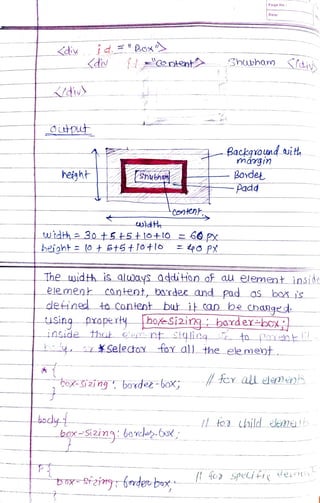 Page No.
Date
<div id = "Box">
<div id = "content"> Shubham </div>
</div>
output
Background with
margin
height
Shubham
Border
Padd
content.
width
width = 30 + 5 + 5 + 10 + 10 = 60 px
height = 10 + 5 + 5 + 10 + 10 = 40 px
The width is always addition of all element inside
element content, border and pad as box is
defined to content but it can be changed
using property box-sizing : border-box;
inside that element styling to parent
* selector for all the element.
* {
box-sizing : border-box; // for all elements
}
body {
// for child elements
box-sizing: border-box;
}
P {
box-sizing: border box; // for specific